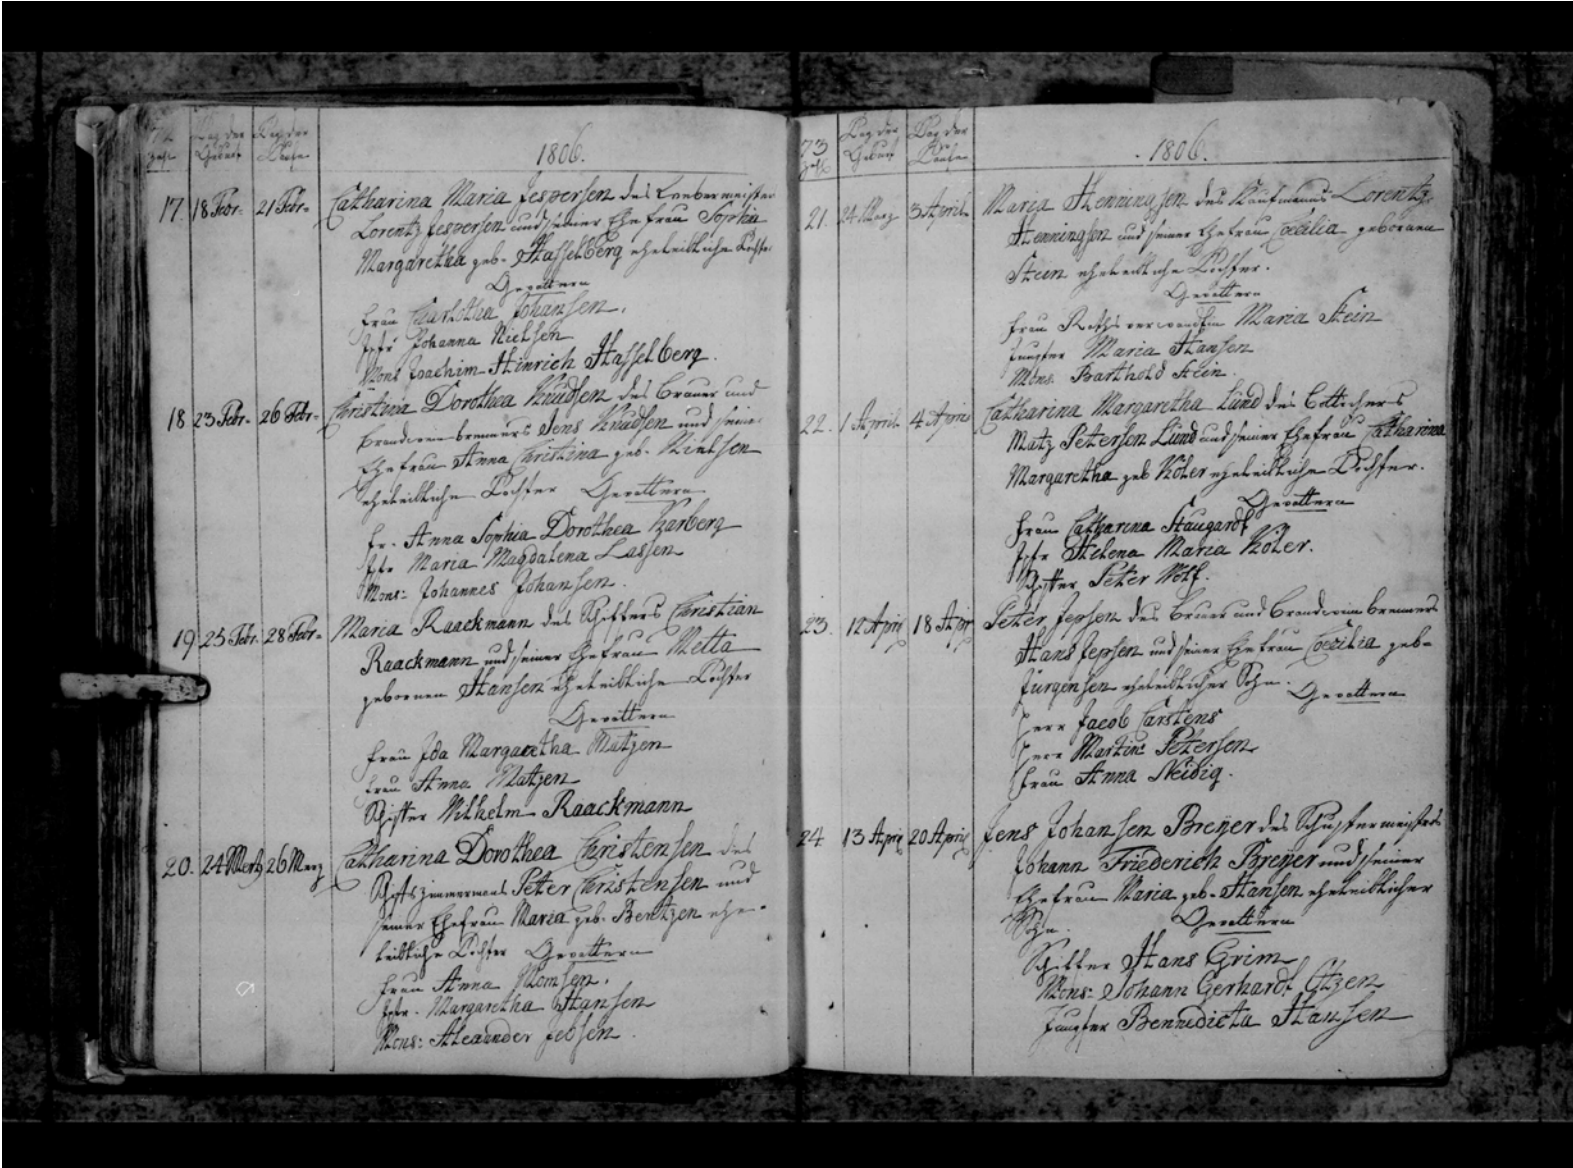 Zahl
Tag der Geburt
Tag der Taufe
1806.
17. 18 Febr- 21 Febr- Catharina Maria Jespersen des Loubermeister
Lorentz Jespersen und seiner Ehefrau Sophia
Margaretha geb- Hasselberg eheleibliche Tochter
Gevattern
Frau Charlotha Johansen.
Jgfr Johanna Nielsen
Mons Joachim Hinrich Hasselberg.
18 23 Febr- 26 Febr- Christina Dorothea Knudsen des Brauer und
Brandweinbrenners Jens Knudsen und seiner
Ehefrau Anna Christina geb- Nielsen
eheleibliche Tochter Gevattern
Fr- Anna Sophia Dorothea Karberg
Jgfr Maria Magdalena Lassen
Mons: Johannes Johansen.
19 25 Febr. 28 Febr- Maria Raackmann des Schiffers Christian
Raackmann und seiner Ehefrau Metta
gebornen Hansen eheleibliche Tochter
Gevattern
Frau Ida Margaretha Matzen
Frau Anna Matzen
Schiffer Wilhelm Raackmann
20. 24 Mertz 26 Merz Catharina Dorothea Christensen des
Schiffszimmermans Peter Christensen und
seiner Ehefrau Maria geb- Bentzen ehe-
leibliche Tochter Gevattern
Frau Anna Momsen.
Jgfr. Margaretha Hansen
Mons: Alexander Jebsen.
73
Zahl
Tag der Geburt
Tag der Taufe
1806.
21. 24 Merz 3 April Maria Henningsen des Kaufmanns Lorentz
Henningsen und seiner Ehefrau Cæcilia gebornen
Stein eheleibliche Tochter.
Gevattern
Frau Rathsverwandtin Maria Stein
Jungfer Maria Hansen
Mons. Barthold Stein.
22. 1 April 4 April Catharina Margaretha Lund des Bötticher's
Matz Petersen Lund und seiner Ehefrau Catharina
Margaretha geb Köler eheleibliche Tochter.
Gevattern
Frau Catharina Staugardt
Jgfr Helena Maria Köler.
Schiffer Peter Wolf.
23. 12 April 18 April Peter Jepsen des Brauer und Brandwein brenners
Hans Jepsen und seiner Ehefrau Cæcilia geb-
Jürgensen eheleiblicher Sohn. Gevattern
Herr Jacob Carstens
Herr Martin Petersen
Frau Anna Neidig.
24 13 April 20 April Jens Johansen Breyer des Schustermeisters
Johann Friederich Breyer und seiner
Ehefrau Maria geb- Hansen eheleiblicher
Sohn. Gevattern
Schiffer Hans Grim
Mons: Johann Gerhardt Etzen
Jungfer Bennedicta Hansen